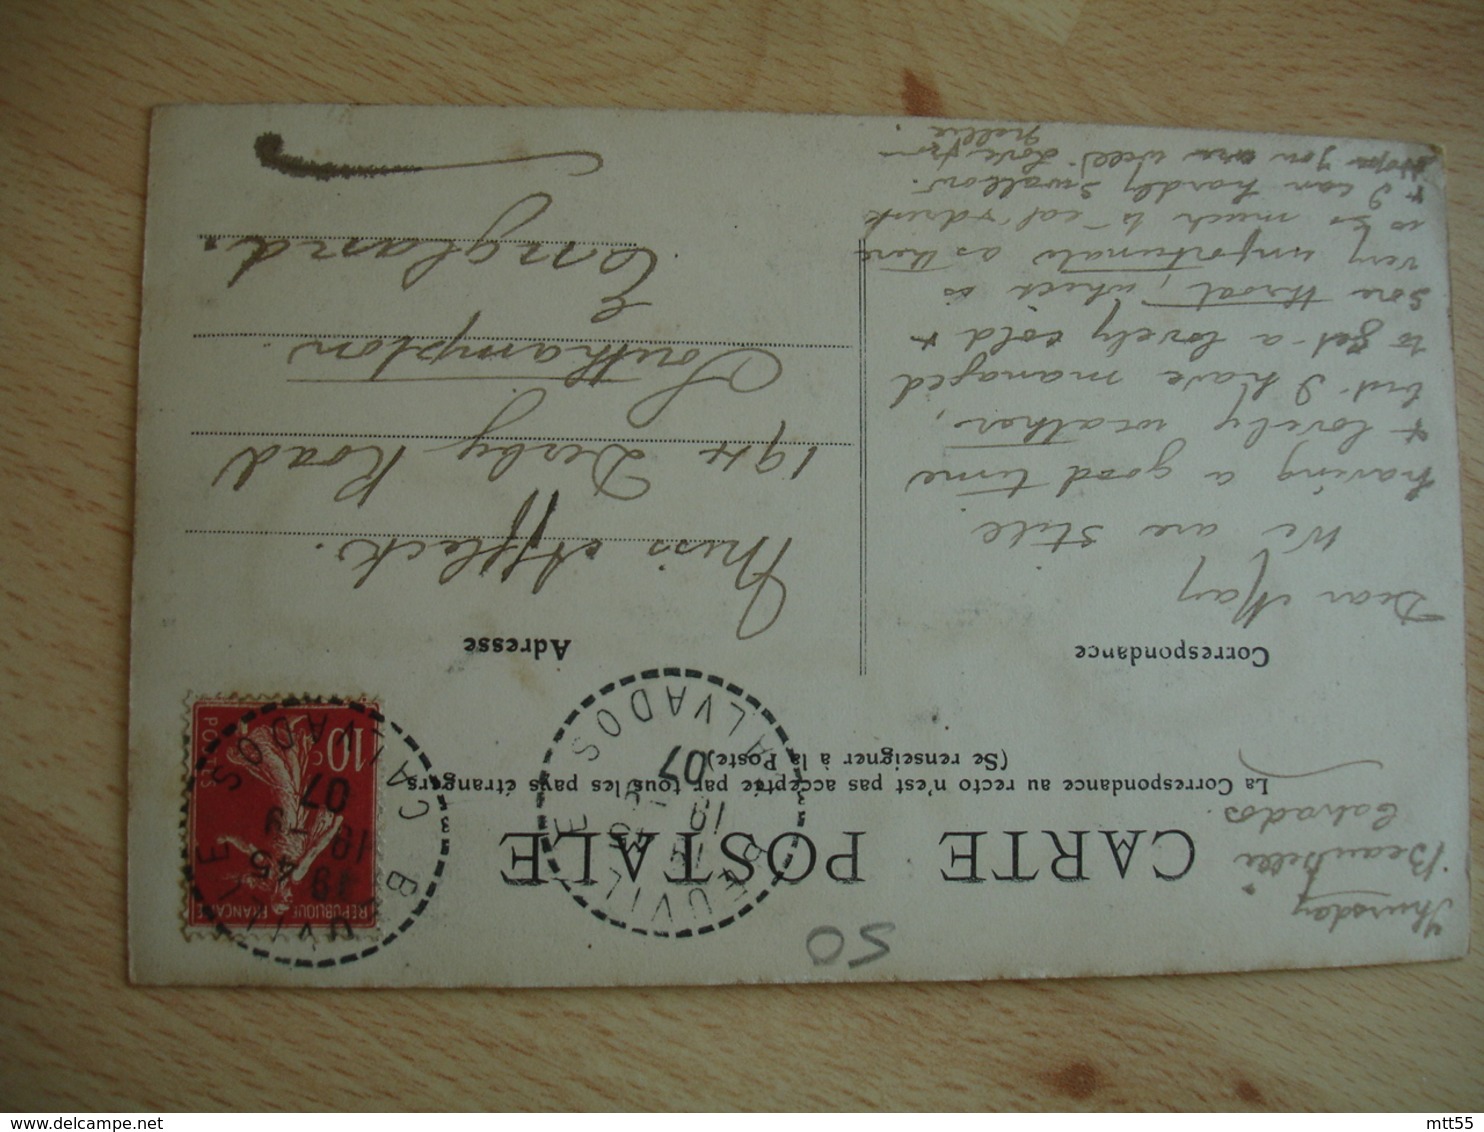 CARTE POSTALE
La Correspondance au recto n'est pas acceptée par tous les pays étrangers
(Se renseigner à la Poste)
Correspondance
Adresse
Thursday
Beauville
Calvados.
Dear May
We are still
having a good time
+ lovely weather,
but I have managed
to get a lovely cold +
sore throat, which is
very unfortunate as there
is so much to eat + drink
+ I can hardly swallow.
Hope you are well. Love from
Nellie.
Miss Affleck.
194 Derby Road
Southampton.
England.
50
RÉPUBLIQUE FRANÇAISE
10c
POSTES
CALVADOS
19
07
CALVADOS
07
mtt55